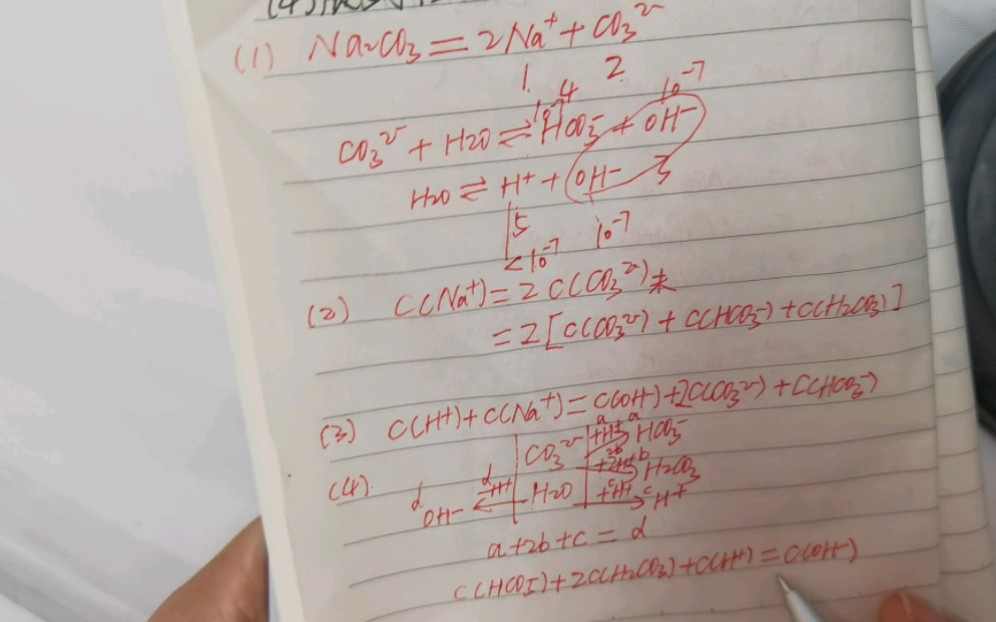 (4)
(1) Na₂CO₃ = 2Na⁺ + CO₃²⁻
1. 2
10⁻⁷
CO₃²⁻ + H2O ⇌ HCO₃⁻ + OH⁻
H2O ⇌ H⁺ + OH⁻ 3
5
<10⁻⁷ 10⁻⁷
(2) C(Na⁺) = 2C(CO₃²⁻)未
= 2[C(CO₃²⁻) + C(HCO₃⁻) + C(H₂CO₃)]
(3) C(H⁺) + C(Na⁺) = C(OH⁻) + 2C(CO₃²⁻) + C(HCO₃⁻)
(4). CO₃²⁻ +H⁺ a HCO₃⁻ a
+2H⁺ 2b H₂CO₃ b
d OH⁻ -H⁺ d H2O +H⁺ c H⁺ c
a+2b+c = d
C(HCO₃⁻) + 2C(H₂CO₃) + C(H⁺) = C(OH⁻)